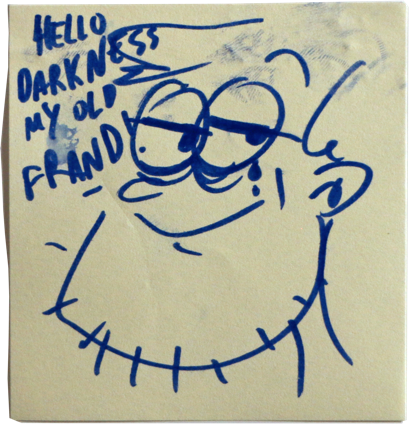 HELLO
DARKNESS
MY OLD
FRAND